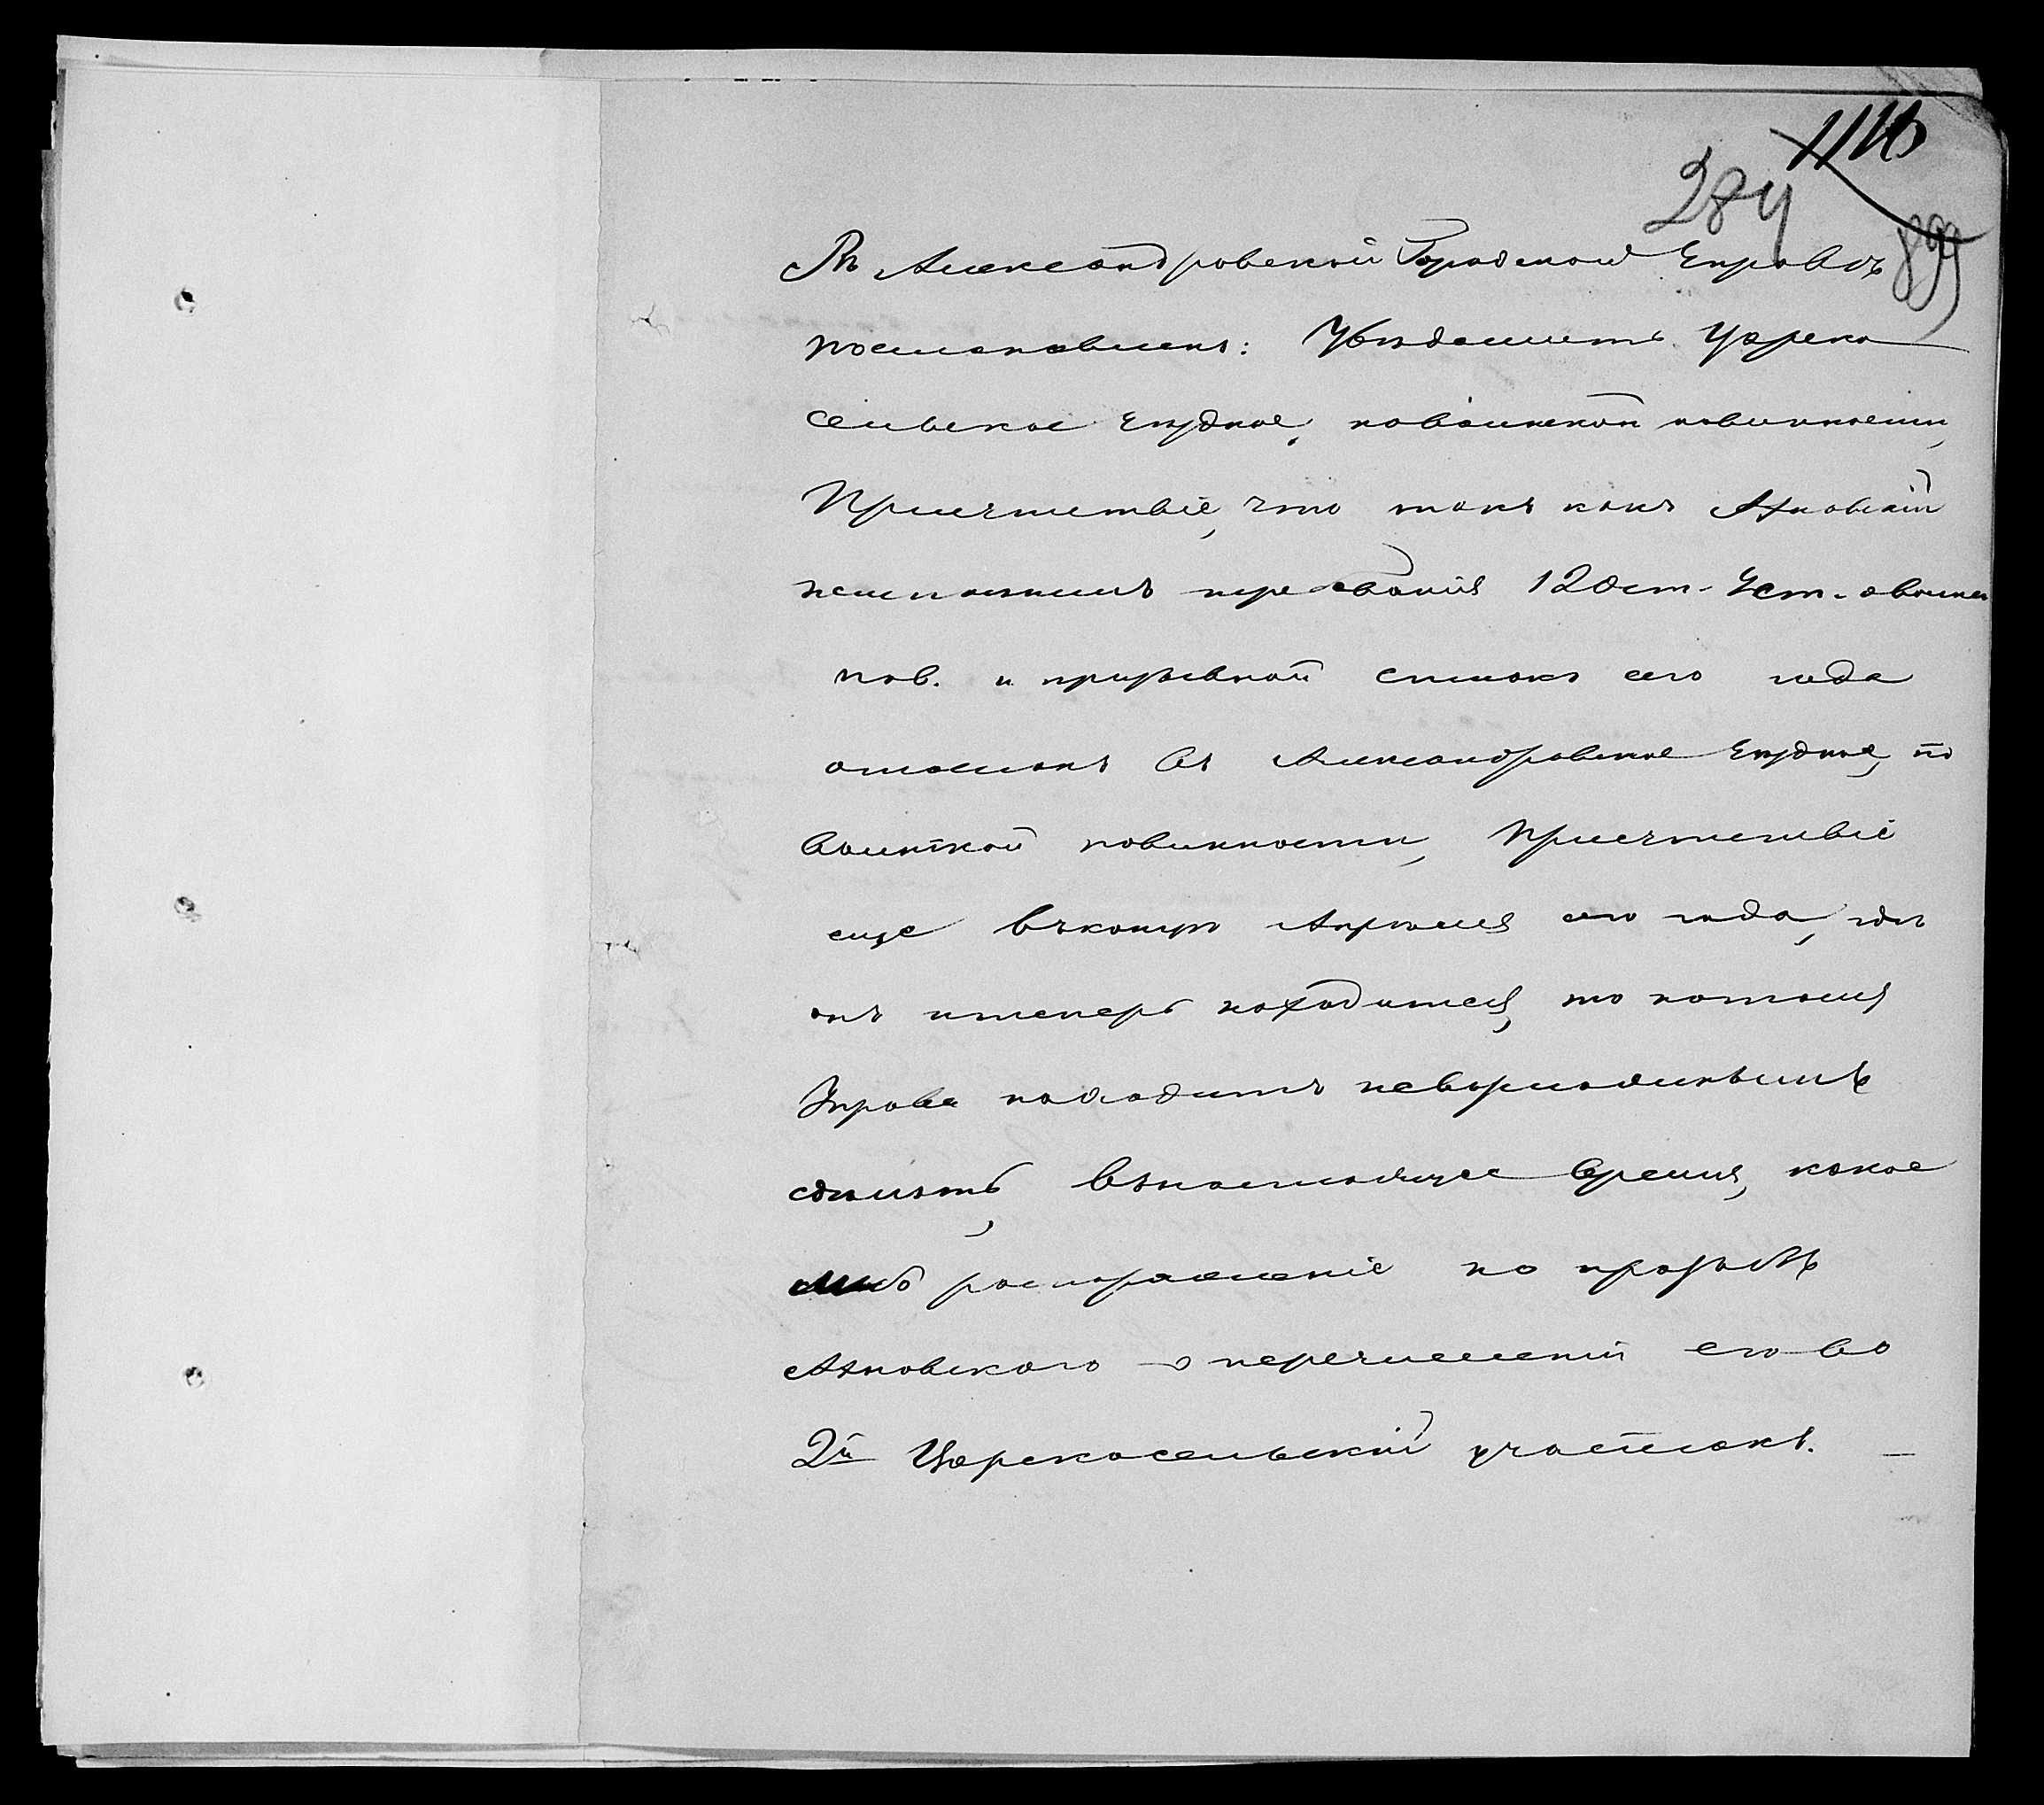 284
899
Въ Александровской Городской Управѣ
постановлено: Увѣдомить Царско
сельское Уѣздное, повоинской повинности,
Присутствіе, что такъ какъ Яновскій
неисполнилъ требованія 12 ст. Уст. овоинск
пов. и призывной списокъ его года
отосланъ въ Александровское Уѣздное, по
воинской повинности, Присутствіе
еще въконцѣ Апрѣля сего года, гдѣ
онъ итеперь находится, то потому
Управа находитъ невозможнымъ
сдѣлать, внастоящее время, какое
либо распоряженіе по просьбѣ
Яновскаго о перечисленіи его во
2й Царскосельскій участокъ. —